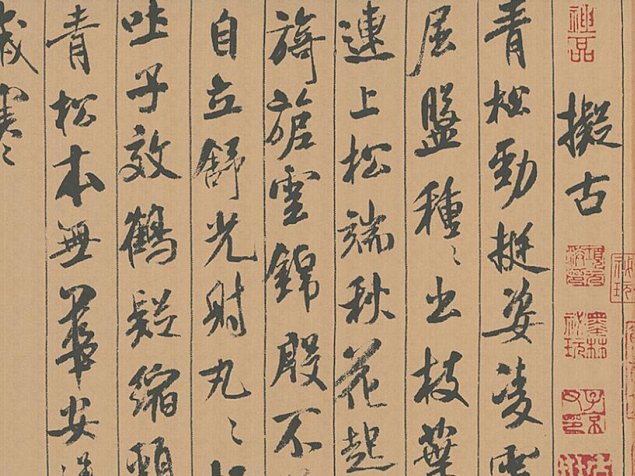 擬古
青松勁挺姿凌
屈盤種々出枝葉
連上松端秋花起
旖旎雲錦殷不
自立舒光射丸々
吐子效鶴疑縮頸
青松本無華安
歲寒